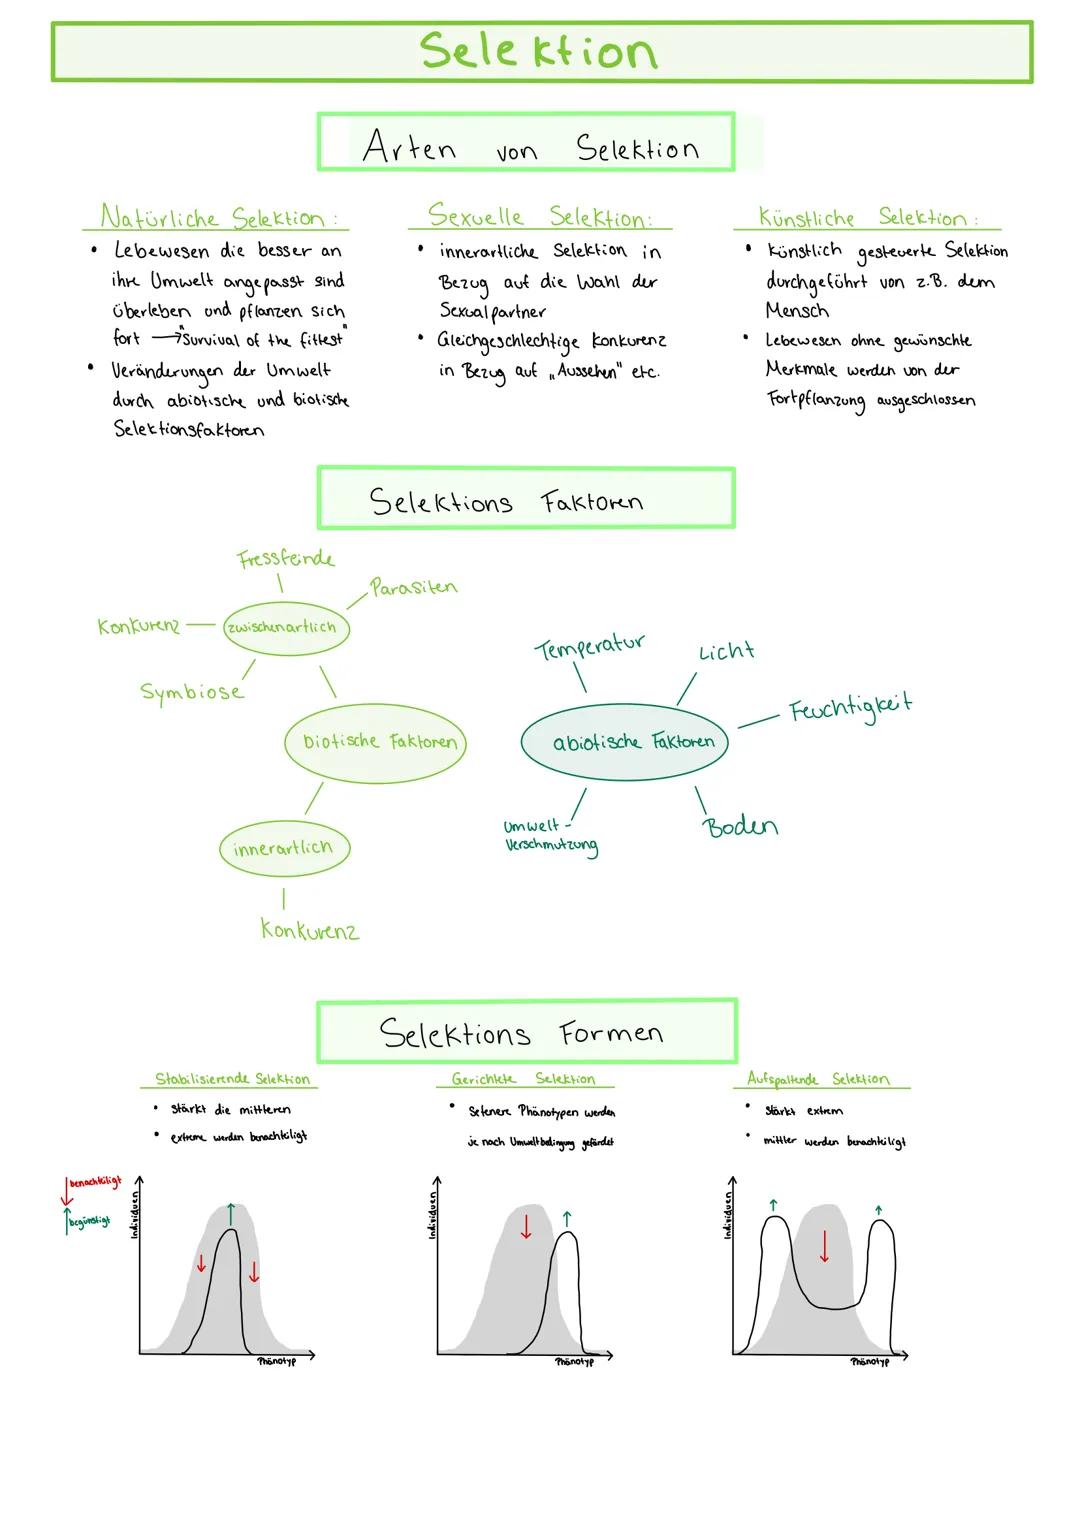 Selektion
Arten von Selektion
Natürliche Selektion:
• Lebewesen die besser an
ihre Umwelt angepasst sind
überleben und pflanzen sich
fort → "Survival of the fittest"
• Veränderungen der Umwelt
durch abiotische und biotische
Selektionsfaktoren
Sexuelle Selektion:
• innerartliche Selektion in
Bezug auf die Wahl der
Sexualpartner
• Gleichgeschlechtige Konkurenz
in Bezug auf „Aussehen" etc.
Künstliche Selektion:
• künstlich gesteuerte Selektion
durchgeführt von z.B. dem
Mensch
• Lebewesen ohne gewünschte
Merkmale werden von der
Fortpflanzung ausgeschlossen
Selektions Faktoren
Fressfeinde
Parasiten
Konkurenz
zwischenartlich
Symbiose
biotische Faktoren
innerartlich
Konkurenz
Temperatur
Licht
Feuchtigkeit
abiotische Faktoren
Umwelt-
verschmutzung
Boden
Selektions Formen
Stabilisierende Selektion
• stärkt die mittleren
• extreme werden benachteiligt
Gerichtete Selektion
• Seltenere Phänotypen werden
je nach Umweltbedingung gefördet
Aufspaltende Selektion
• stärkt extrem
• mittler werden benachteiligt
benachteiligt
begünstigt
Individuen
Phänotyp
Individuen
Phänotyp
Individuen
Phänotyp